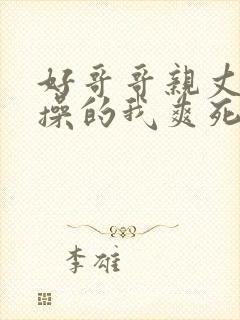 好哥哥亲丈
操的我爽死
李雄